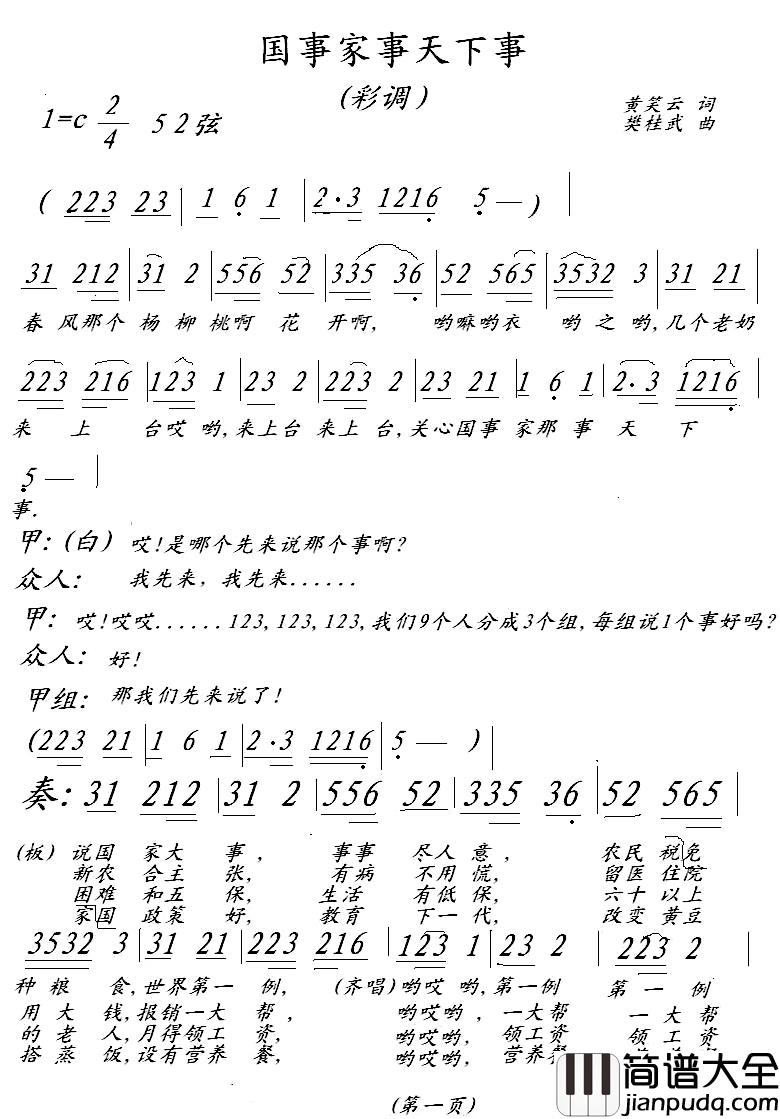 国事家事天下事
(彩调)
黄笑云 词
樊桂武 曲
1=c 2/4 5 2弦
( 223 23 | 1 6 1 | 2·3 1216 5 — ) |
31 212 | 31 2 | 556 52 | 335 36 | 52 565 | 3532 3 | 31 21 |
春风那个 杨柳 桃啊 花 开啊, 哟嘛哟衣 哟之哟,几个老奶
223 216 | 123 1 | 23 2 | 223 2 | 23 21 | 1 6 1 | 2·3 1216
来 上 台哎哟,来上台 来上台,关心国事 家那事 天 下
5 — |
事.
甲:(白) 哎!是哪个先来说那个事啊?
众人: 我先来,我先来......
甲: 哎!哎哎......123,123,123,我们9个人分成3个组,每组说1个事好吗?
众人: 好!
甲组: 那我们先来说了!
(223 21 | 1 6 1 | 2·3 1216 | 5 — )
奏: 31 212 | 31 2 | 556 52 | 335 36 | 52 565 |
(板) 说国 家大 事, 事事 尽人意, 农民 税免
新农 合主 张, 有病 不用慌, 留医 住院
困难 和五 保, 生活 有低保, 六十 以上
家国 政策 好, 教育 下一代, 改变 黄豆
3532 3 | 31 21 | 223 216 | 123 1 | 23 2 | 223 2 |
种粮 食,世界第一 例, (齐唱)哟哎 哟,第一例 第一例
用大 钱,报销一大 帮, 哟哎哟, 一大帮 一大帮
的老 人,月得领工 资, 哟哎哟, 领工资 领工资
搭蒸 饭,设有营养 餐, 哟哎哟, 营养餐
(第一页)
简谱大全
jianpudq.com